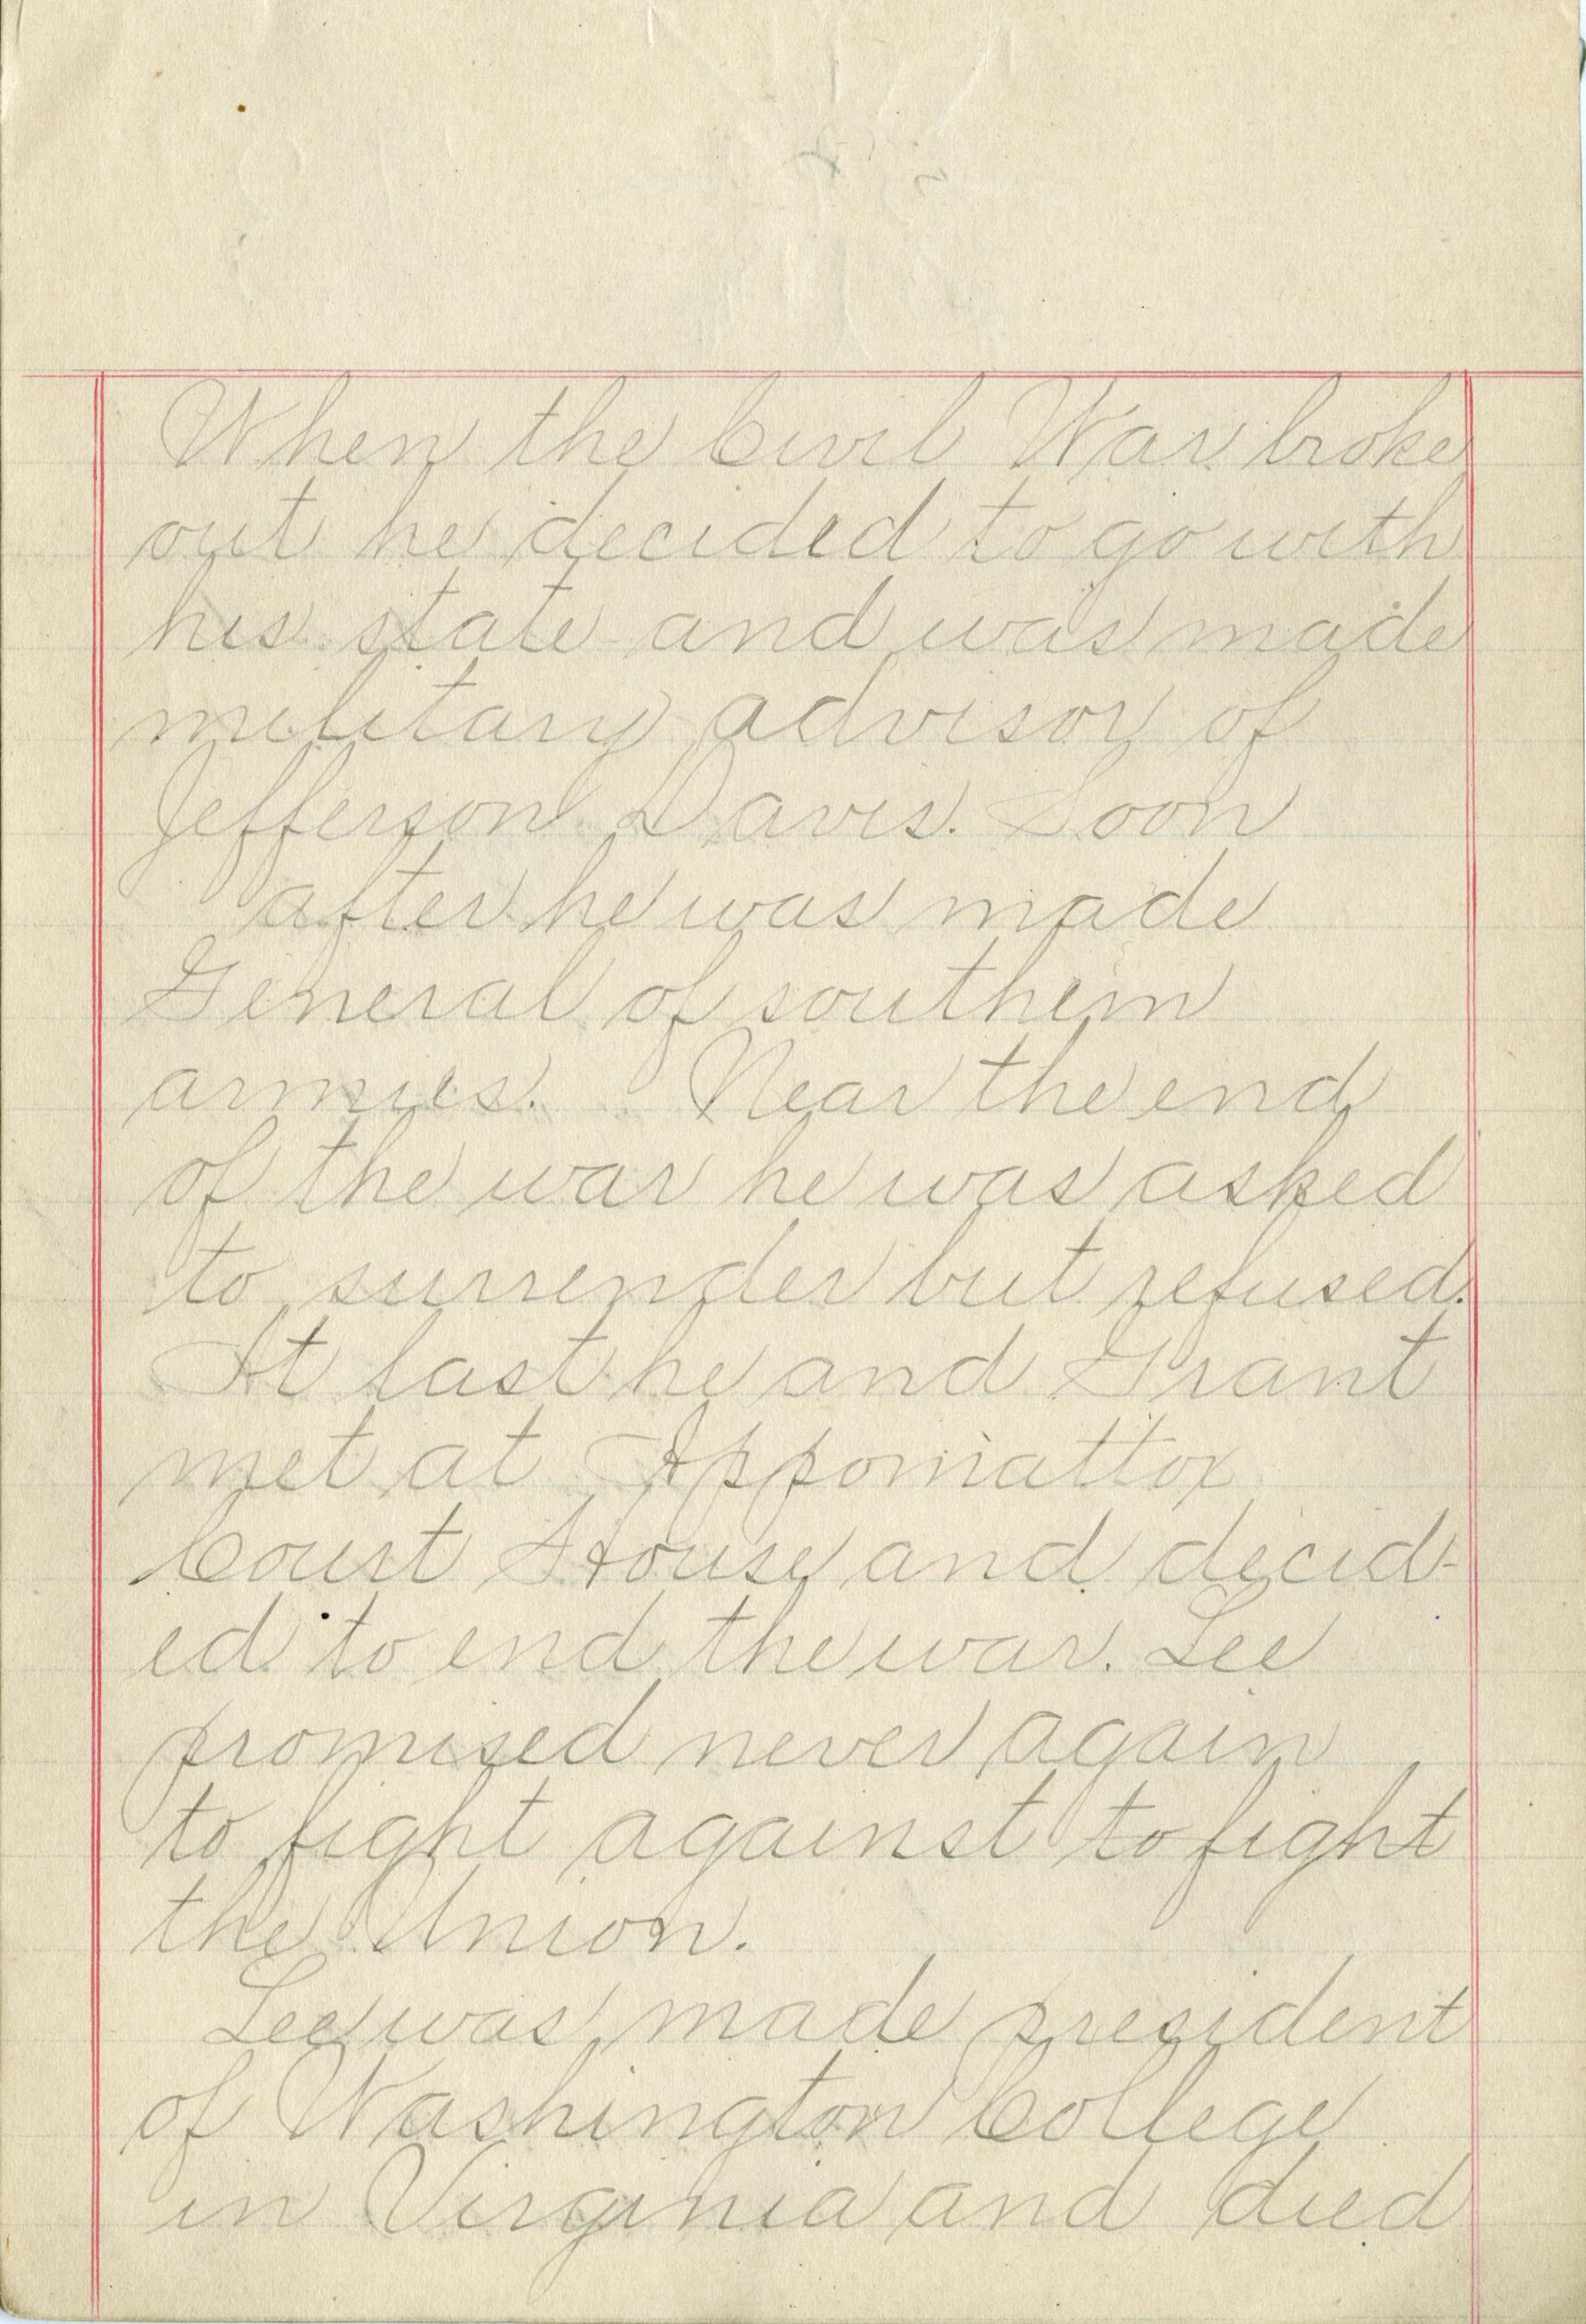 When the Civil War broke
out he decided to go with
his state and was made
military advisory of
Jefferson Davis. Soon
after he was made
General of southern
armies. Near the end
of the war he was asked
to surrender but refused.
At last he and Grant
met at Appomattox
Court House and decid-
ed to end the war. Lee
promised never again
to fight against to fight
the Union.
Lee was made president
of Washington College
in Virginia and died